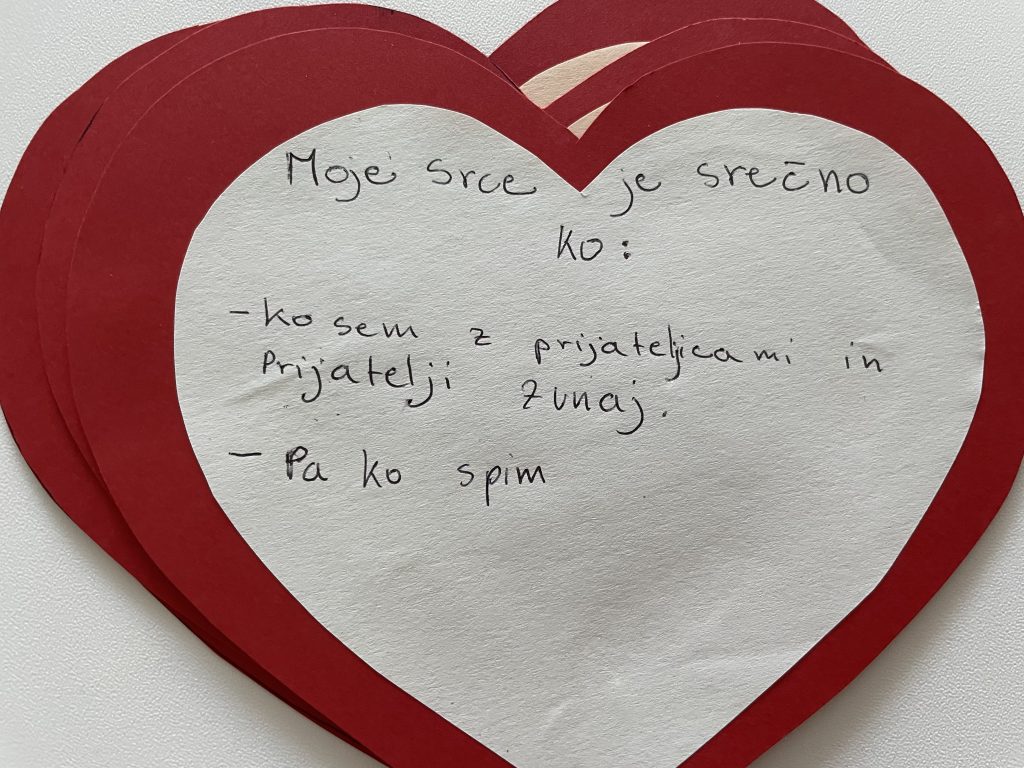 Moje srce je srečno
ko:
- ko sem z prijateljicami in
Prijatelji zunaj.
- Pa ko spim